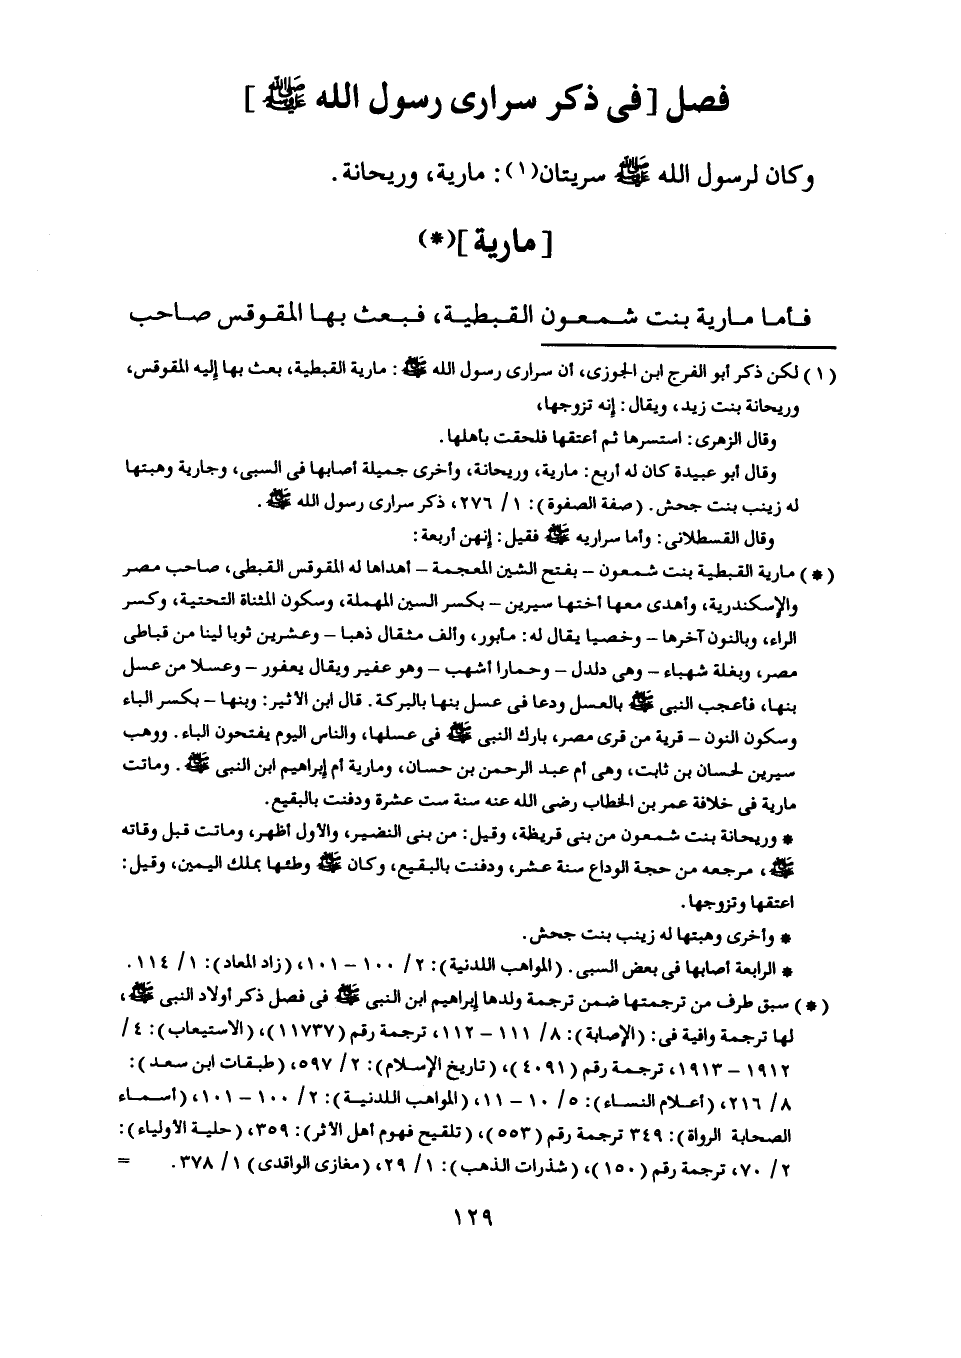 فصل [فى ذكر سرارى رسول الله ﷺ]
وكان لرسول الله ﷺ سريتان(١): مارية، وريحانة.
[مارية](*)
فأما مارية بنت شمعون القبطية، فبعث بها المقوقس صاحب
(١) لكن ذكر أبو الفرج ابن الجوزى، أن سرارى رسول الله ﷺ: مارية القبطية، بعث بها إليه المقوقس،
وريحانة بنت زيد، ويقال: إنه تزوجها،
وقال الزهرى: استسرها ثم أعتقها فلحقت بأهلها.
وقال أبو عبيدة كان له أربع: مارية، وريحانة، وأخرى جميلة أصابها فى السبى، وجارية وهبتها
له زينب بنت جحش. (صفة الصفوة): ١/ ٢٧٦، ذكر سرارى رسول الله ﷺ.
وقال القسطلانى: وأما سراريه ﷺ فقيل: إنهن أربعة:
(*) مارية القبطية بنت شمعون – بفتح الشين المعجمة – أهداها له المقوقس القبطى، صاحب مصر
والإسكندرية، وأهدى معها أختها سيرين – بكسر السين المهملة، وسكون المثناة التحتية، وكسر
الراء، وبالنون آخرها – وخصيا يقال له: مأبور، وألف مثقال ذهبا – وعشرين ثوبا لينا من قباطى
مصر، وبغلة شهباء – وهى دلدل – وحمارا أشهب – وهو عفير ويقال يعفور – وعسلا من عسل
بنها، فأعجب النبى ﷺ بالعسل ودعا فى عسل بنها بالبركة. قال ابن الأثير: وبنها – بكسر الباء
وسكون النون – قرية من قرى مصر، بارك النبى ﷺ فى عسلها، والناس اليوم يفتحون الباء. ووهب
سيرين لحسان بن ثابت، وهى أم عبد الرحمن بن حسان، ومارية أم إبراهيم ابن النبى ﷺ. وماتت
مارية فى خلافة عمر بن الخطاب رضى الله عنه سنة ست عشرة ودفنت بالبقيع.
* وريحانة بنت شمعون من بنى قريظة، وقيل: من بنى النضير، والأول أظهر، وماتت قبل وفاته
ﷺ، مرجعه من حجة الوداع سنة عشر، ودفنت بالبقيع، وكان ﷺ وطئها بملك اليمين، وقيل:
اعتقها وتزوجها.
* وأخرى وهبتها له زينب بنت جحش.
* الرابعة أصابها فى بعض السبى. (المواهب اللدنية): ٢/ ١٠٠ – ١٠١، (زاد المعاد): ١/ ١١٤.
(*) سبق طرف من ترجمتها ضمن ترجمة ولدها إبراهيم ابن النبى ﷺ فى فصل ذكر أولاد النبى ﷺ،
لها ترجمة وافية فى: (الإصابة): ٨/ ١١١ – ١١٢، ترجمة رقم (١١٧٣٧)، (الاستيعاب): ٤/
١٩١٢ – ١٩١٣، ترجمة رقم (٤٠٩١)، (تاريخ الإسلام): ٢/ ٥٩٧، (طبقات ابن سعد):
٨/ ٢١٦، (أعلام النساء): ٥/ ١٠ – ١١، (المواهب اللدنية): ٢/ ١٠٠ – ١٠١، (أسماء
الصحابة الرواة): ٣٤٩ ترجمة رقم (٥٥٣)، (تلقيح فهوم أهل الأثر): ٣٥٩، (حلية الأولياء):
٢/ ٧٠، ترجمة رقم (١٥٠)، (شذرات الذهب): ١/ ٢٩، (مغازى الواقدى) ١/ ٣٧٨. =
١٢٩